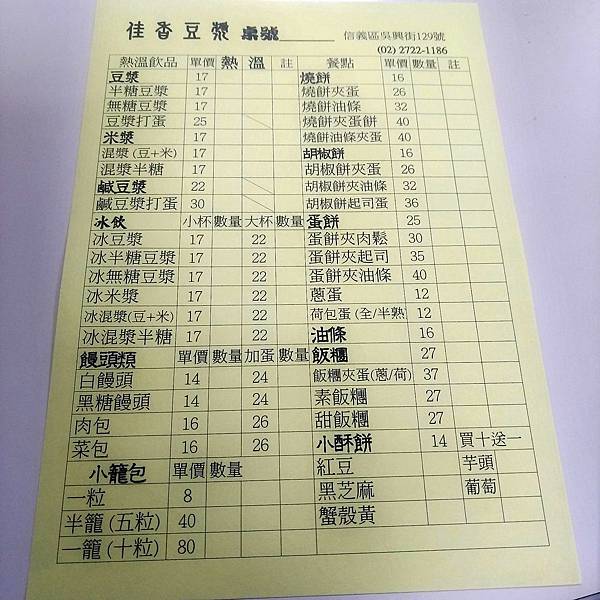 佳香豆漿 桌號 信義區吳興街129號
(02) 2722-1186
熱溫飲品 單價 熱 溫 註 餐點 單價 數量 註
豆漿 17 燒餅 16
半糖豆漿 17 燒餅夾蛋 26
無糖豆漿 17 燒餅油條 32
豆漿打蛋 25 燒餅夾蛋餅 40
米漿 17 燒餅油條夾蛋 40
混漿(豆+米) 17 胡椒餅 16
混漿半糖 17 胡椒餅夾蛋 26
鹹豆漿 22 胡椒餅夾油條 32
鹹豆漿打蛋 30 胡椒餅起司蛋 36
冰飲 小杯 數量 大杯 數量 蛋餅 25
冰豆漿 17 22 蛋餅夾肉鬆 30
冰半糖豆漿 17 22 蛋餅夾起司 35
冰無糖豆漿 17 22 蛋餅夾油條 40
冰米漿 17 22 蔥蛋 12
冰混漿(豆+米) 17 22 荷包蛋(全/半熟) 12
冰混漿半糖 17 22 油條 16
饅頭類 單價 數量 加蛋 數量 飯糰 27
白饅頭 14 24 飯糰夾蛋(蔥/荷) 37
黑糖饅頭 14 24 素飯糰 27
肉包 16 26 甜飯糰 27
菜包 16 26 小酥餅 14 買十送一
小籠包 單價 數量 紅豆 芋頭
一粒 8 黑芝麻 葡萄
半籠(五粒) 40 蟹殼黃
一籠(十粒) 80